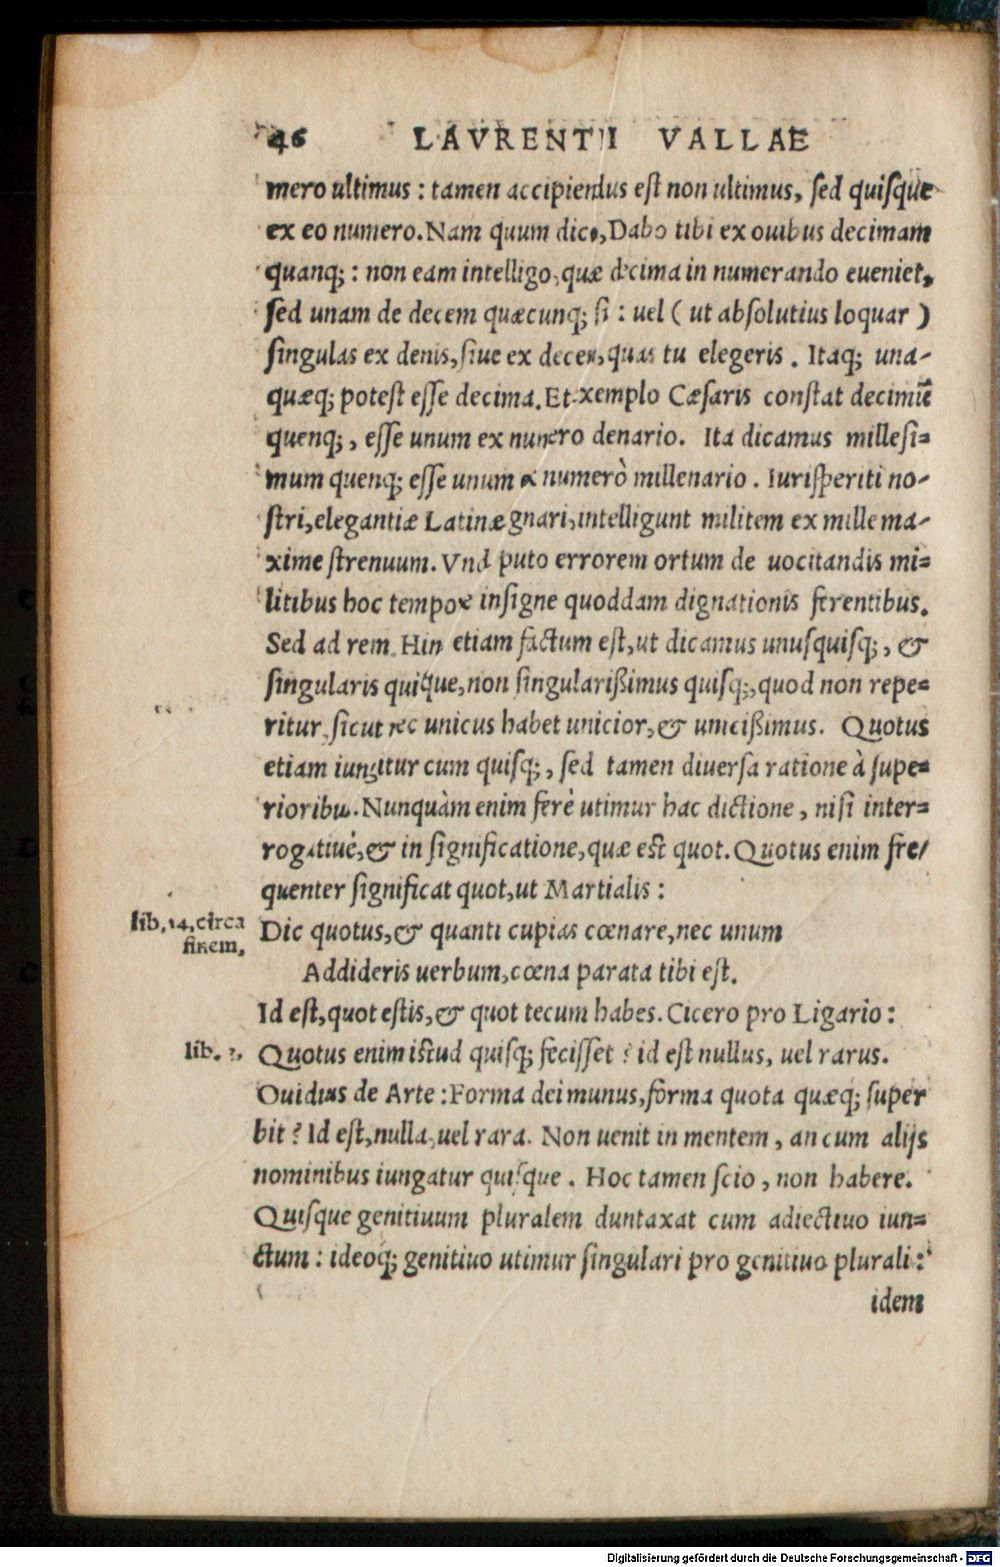 46 LAVRENTII VALLAE
mero ultimus : tamen accipiendus est non ultimus, sed quisque
ex eo numero. Nam quum dico, Dabo tibi ex ouibus decimam
quanq; : non eam intelligo, quæ decima in numerando eueniet,
sed unam de decem quæcunq; si : uel ( ut absolutius loquar )
singulas ex denis, siue ex decem, quas tu elegeris . Itaq; una-
quæq; potest esse decima. Et exemplo Cæsaris constat decimũ
quenq; , esse unum ex numero denario. Ita dicamus millesi-
mum quenq; esse unum ex numerò millenario . Iurisperiti no-
stri, elegantiæ Latinæ gnari, intelligunt militem ex mille ma-
xime strenuum. Vnd puto errorem ortum de uocitandis mi-
litibus hoc tempore insigne quoddam dignationis ferentibus.
Sed ad rem. Hin etiam factum est, ut dicamus unusquisq; , &
singularis quisque, non singularißimus quisq;, quod non repe-
ritur, sicut nec unicus habet unicior, & unicißimus. Quotus
etiam iungitur cum quisq; , sed tamen diuersa ratione à supe-
rioribus. Nunquàm enim ferè utimur hac dictione , nisi inter-
rogatiuè, & in significatione, quæ est quot. Quotus enim fre-
quenter significat quot, ut Martialis :
lib, 14, circa finem,
Dic quotus, & quanti cupias cœnare, nec unum
Addideris uerbum, cœna parata tibi est.
Id est, quot estis, & quot tecum habes. Cicero pro Ligario :
lib. 3,
Quotus enim istud quisq; fecisset ? id est nullus, uel rarus.
Ouidius de Arte : Forma dei munus, forma quota quæq; super
bit ? Id est, nulla, uel rara. Non uenit in mentem , an cum alijs
nominibus iungatur quisque . Hoc tamen scio , non habere.
Quisque genitiuum pluralem duntaxat cum adiectiuo iun-
ctum : ideoq; genitiuo utimur singulari pro genitiuo plurali :
idem
Digitalisierung gefördert durch die Deutsche Forschungsgemeinschaft - DFG